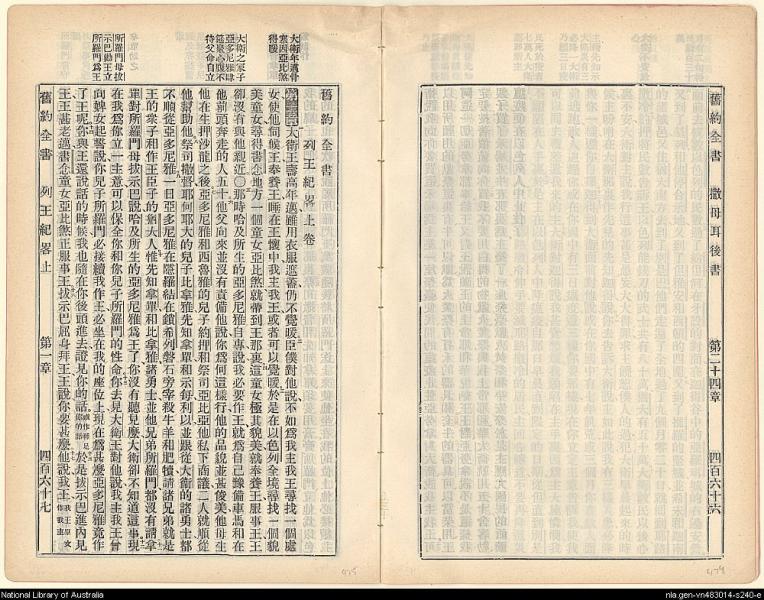 舊約全書 撒母耳後書 第二十四章 四百六十六
舊約全書
列王紀畧上卷
大衛王壽高年邁雖用衣服遮蓋仍不覺暖臣僕對他說不如為我主我王尋找一個處
女使他伺候王奉養王睡在王懷中我主我王或者可以覺暖於是在以色列全境尋找一個貌
美童女尋得書念地方一個童女亞比煞就帶到王那裏這童女極其貌美就奉養王服事王王
卻沒有與他親近○那時哈及所生的亞多尼雅自專說我必要作王就為自己豫備車馬和在
他前頭奔走的人五十他父向來並沒有責備他說你為何這樣行他的品貌並甚俊美他母生
他在生押沙龍之後亞多尼雅和西魯雅的兒子約押和祭司亞比亞他私下商議二人就順從
他幫助他祭司撒督耶何耶大的兒子比拿雅先知拿單和示每利以並跟從大衛的諸勇士都
不順從亞多尼雅一日亞多尼雅在隱羅結在鎖希列磐石旁宰殺牛羊和肥犢請諸兄弟就是
王的衆子和作王臣子的猶大人惟先知拿單和比拿雅諸勇士並他兄弟所羅門都沒有請拿
單對所羅門母拔示巴說哈及所生的亞多尼雅為王了你沒有聽見麼大衛卻不知道這事現
在我為你立一主意可以保全你和你兒子所羅門的性命你去見大衛王對他說我主我王曾
向婢女起誓說你兒子所羅門必接續我作王必坐在我的座位上現在為甚麼亞多尼雅竟作
了王呢你與王還說話的時候我也隨在你後頭進去證見你的話於是拔示巴進內見
王王甚老邁書念童女亞比煞正服事王拔示巴屈身拜王王說你要甚麼他說我主
大衛年邁骨
塞因亞比煞
得暖
待父命自立
所羅門母拔
示巴勸王立
所羅門為王
舊約全書 列王紀畧上 第一章 四百六十七
National Library of Australia
nla.gen-vn483014-s240-e